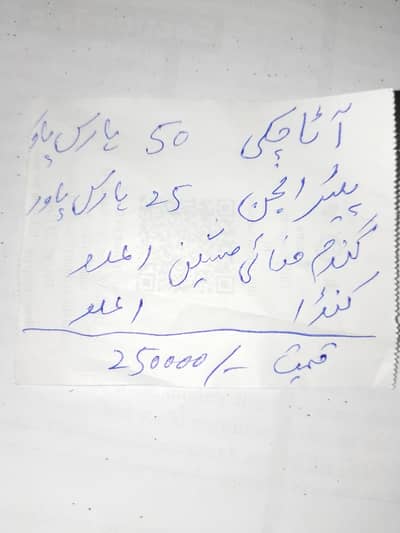 آٹا چکی 50 ہارس پاو
پیٹر انجن 25 ہارس پاور
گندم صفائی مشین 1 عدد
کنڈا 1 عدد
قیمت 250000/-